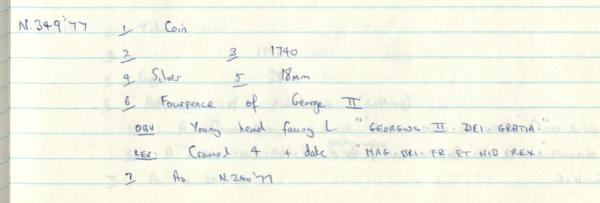 N.349'77 1 Coin
2 3 1740
4 Silver 5 18mm
6 Fourpence of George II
OBV Young head facing L. "GEORGIVS II. DEI. GRATIA."
REV: Crowned 4 + date "MAG. BRI. FR. ET. HIB REX"
7 As N.240'77